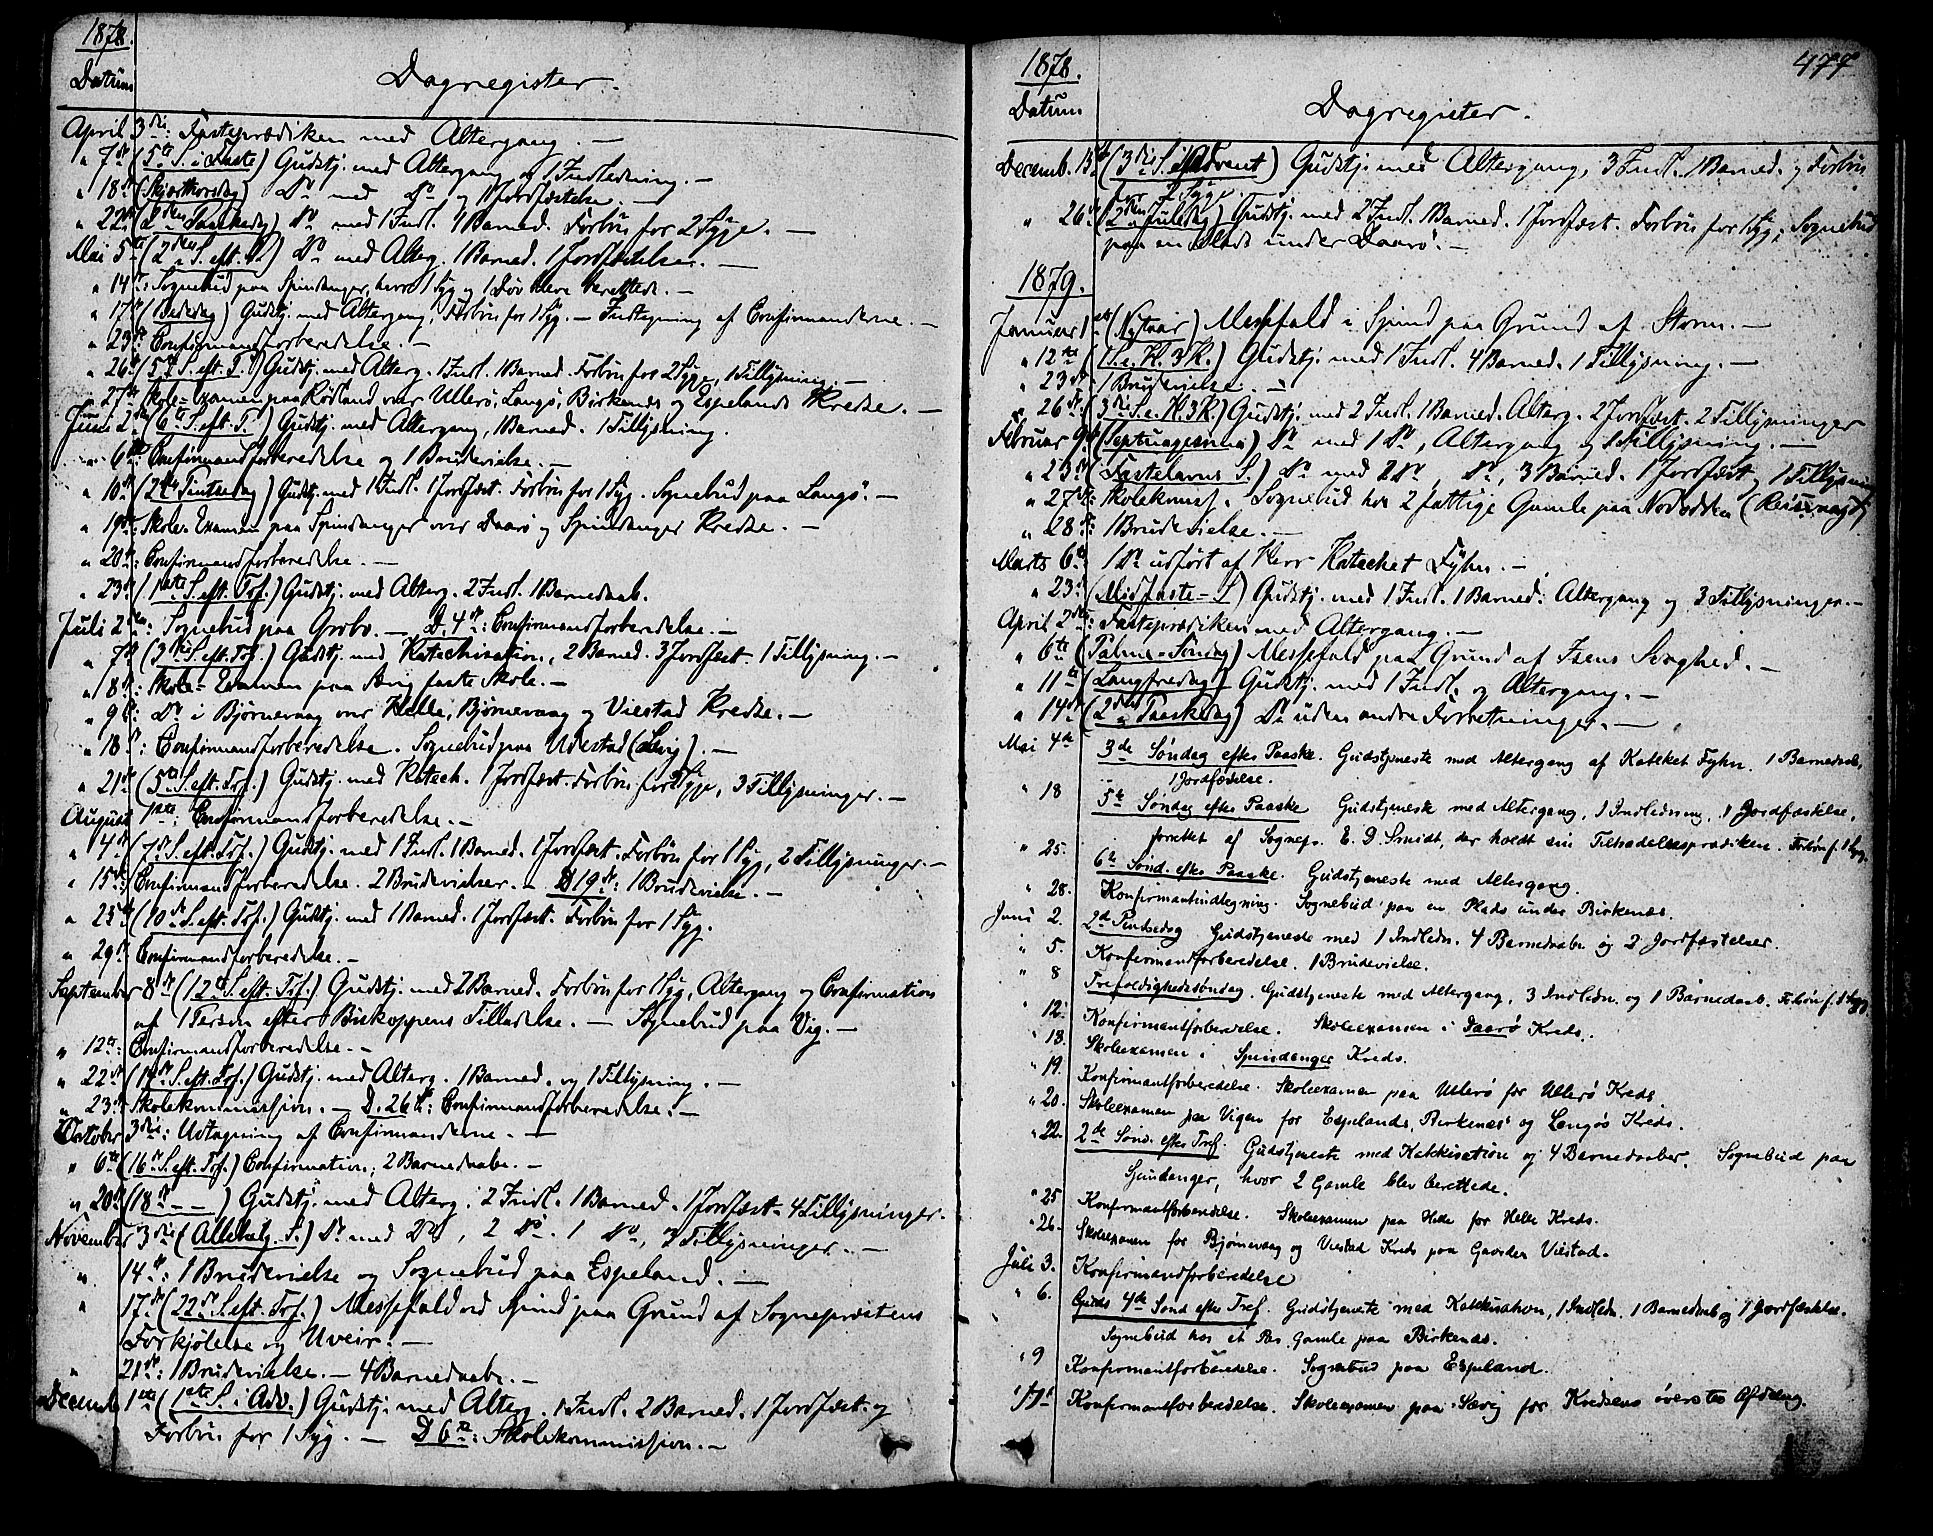 1878.
Datum
Dagregister.
April 3die: Fasteprædiken med Altergang. —
" 7de (5te S. i Faste) Gudstj. med Altergang og 1 Indledning. —
" 18de (Skjærthorsdag) Do med Do og 1 Jordfæstelse. —
" 22de (2den Paaskedag) Do med 1 Indl. 1 Barned. Forbøn for 2 Syge. —
Mai 5te (2den S. eft. P.) Do med Alterg. 1 Barned. 1 Jordfæstelse. —
" 14de: Sognebud paa Spindanger, hvor 1 Syg og 1 Døv bleve berettede. —
" 17de (Bededag) Gudstj. med Altergang, Forbøn for 1 Syg. — Indtagning af Confirmanderne. —
" 23de Confirmandforberedelse. —
" 26de (5te S. eft. P.) Gudstj. med Alterg. 1 Indl. 1 Barned. Forbøn for 2 Syge, 1 Tillysning. —
" 27de Skole-Examen paa Rødland over Ullerø, Langø, Birkenes og Espelands Kredse. —
Juni 2den (6te S. eft. P.) Gudstj. med Altergang, 1 Barned. 1 Tillysning.
" 6te: Confirmandforberedelse og 1 Brudevielse. —
" 10de (2den Pintsedag) Gudstj. med 1 Indl. 1 Jordfæst. Forbøn for 1 Syg. Sognebud paa Langø. —
" 19de: Skole-Examen paa Spindanger over Daarø og Spindanger Kredse. —
" 20de: Confirmandforberedelse. —
" 23de (1ste S. eft. Tref.) Gudstj. med Alterg. 2 Indl. 1 Barnedaab.
Juli 2den: Sognebud paa . — D. 4de: Confirmandforberedelse. —
" 7de (3die S. eft. Tref.) Gudstj. med Katechisation, 2 Barned. 3 Jordfæst. 1 Tillysning. —
" 8de: Skole-Examen paa faste Skole. —
" 9de: Do i Bjørnevaag over Helle, Bjørnevaag og Viestad Kredse. —
" 18de: Confirmandforberedelse. Sognebud paa Udestad . —
" 21de (5te S. eft. Tref.) Gudstj. med Katech. 1 Jordfæst. Forbøn for Syge, 3 Tillysninger. —
August 1ste: Confirmandforberedelse. —
" 4de (7de S. eft. Tref.) Gudstj. med 1 Indl. 1 Barned. 1 Jordfæst. Forbøn for 1 Syg, 2 Tillysninger. —
" 15de: Confirmandforberedelse. 2 Brudevielser. — D. 19de: 1 Brudevielse. —
" 25de (10de S. eft. Tref.) Gudstj. med 1 Barned. 1 Jordfæst. Forbøn for 1 Syg.
" 29de: Confirmandforberedelse. —
September 8de (12te S. eft. Tref.) Gudstj. med 2 Barned. Forbøn for 1 Syg, Altergang og Confirmation
af 1 Person efter Biskoppens Tilladelse. — Sognebud paa Vig. —
" 12te: Confirmandforberedelse. —
" 22de (14de S. eft. Tref.) Gudstj. med Alterg. 1 Barned. og 1 Tillysning. —
" 23de Skolekommission. — D. 26de: Confirmandforberedelse. —
October 3die: Udtagning af Confirmanderne. —
" 6te (16de S. eft. Tref.) Confirmation; 2 Barnedaabe. —
" 20de (18de — —) Gudstj. med Alterg. 2 Indl. 1 Barned. 1 Jordfæst. 4 Tillysninger.
November 3die (Allehelg. S.) Do med Do, 2 Do. 1 Do, 3 Tillysninger. —
" 14de: 1 Brudevielse og Sognebud paa Espeland. —
" 17de (22de S. eft. Tref.) Messefald ved Spind paa Grund af Sognepræstens
Forkjølelse og Uveir. —
" 21de: 1 Brudevielse. — 4 Barnedaabe. —
Decemb. 1ste (1ste S. i Adv.) Gudstj. med Alterg. 1 Indl. 2 Barned. 1 Jordfæst. og
Forbøn for 1 Syg. — D. 6te: Skolekommission. —
1878.
477
Datum
Dagregister.
Decemb. 15de (3die S. i Advent) Gudstj. med Altergang, 3 Indl. 1 Barned. og Forbøn
for 2 Syge. —
" 26de (2den Juledag) Gudstj. med 2 Indl. 1 Barned. 1 Jordfæst. Forbøn for 1 Syg; Sognebud
paa en Plads under Daarø. —
1879.
Januar 1ste (Nytaar) Messefald i Spind paa Grund af Storm. —
" 12te (1 S. e. H. 3 K.) Gudstj. med 1 Indl. 4 Barned. 1 Tillysning. —
" 23de 1 Brudevielse. —
" 26de (3die S. e. H. 3 K.) Gudstj. med 2 Indl. 1 Barned. Alterg. 2 Jordfæst. 2 Tillysninger
Februar 9de (Septuagesima) Do med 1 Do, Altergang og 1 Tillysning. —
" 23de (Fastelavns S.) Do med 2 Do, Do, 3 Barned. 1 Jordfæst. og 1 Tillysning
" 27de: Skolekomsj. Sognebud hos 2 fattige Gamle paa Nordodden
" 28de: 1 Brudevielse. —
Marts 6te: 1 Do udført af Herr Katechet Fyhn. —
" 23de (Midfaste-S.) Gudstj. med 1 Indl. 1 Barned. Altergang og 3 Tillysninger. —
April 2den: Fasteprædiken med Altergang. —
" 6te (Palme-Søndag) Messefald paa Grund af Isens Svaghed. —
" 11te (Langfredag) Gudstj. med 1 Indl. og Altergang. —
" 14de (2den Paaskedag) Do uden andre Forretninger. —
Mai 4de 3de Søndag efter Paaske. Gudstjeneste med Altergang af Kateket Fyhn. 1 Barnedaab,
1 Jordfæstelse.
" 18 5te Søndag efter Paaske Gudstjeneste med Altergang, 1 Indledning, 1 Jordfæstelse,
forrettet af Sognepr. E. D. Smidt, der holdt sin Tiltrædelsesprædiken. Forbøn f. 1 Syg.
" 25. 6te Sønd. efter Paaske. Gudstjeneste med Altergang.
" 28. Konfirmantindtegning. Sognebud paa en Plads under Birkenæs.
Juni 2. 2d Pindsedag Gudstjeneste med 1 Indledn. 4 Barnedaabe og 2 Jordfæstelser.
" 5. Konfirmandforberedelse. 1 Brudevielse.
" 8 Trefoldighedssøndag. Gudstjeneste med Altergang, 3 Indledn. og 1 Barnedaab. Forbøn f. 1 Syg.
" 12. Konfirmantforberedelse. Skoleexamen i Daarø Kreds.
" 13. Skoleexamen i Spindanger Kreds.
" 19. Konfirmantforberedelse. Skoleexamen paa Ullerø for Ullerø Kreds.
" 20. Skoleexamen paa Vigen for Espelands, Birkenæs og Langøs Kreds.
" 22. 2de Sønd. efter Tref. Gudstjeneste med Katekisation og 4 Barnedaaber. Sognebud paa
Spindanger, hvor 2 Gamle blev berettede.
" 25 Konfirmantforberedelse. Skoleexamen paa Helle for Helle Kreds.
" 26. Skoleexamen for Bjørnevaag og Viestad Kreds paa Gaarden Viestad.
Juli 3. Konfirmandforberedelse
" 6. 4de Sønd efter Tref. Gudstjeneste med Katekisation, 1 Indledn. 1 Barnedaab og 1 Jordfæstelse.
Sognebud hos et Par Gamle paa Birkenæs.
" 9 Konfirmantforberedelse. Sognebud paa Espeland.
Konfirmantforberedelse. Skoleexamen paa for Kredsens øverste Afdeling.